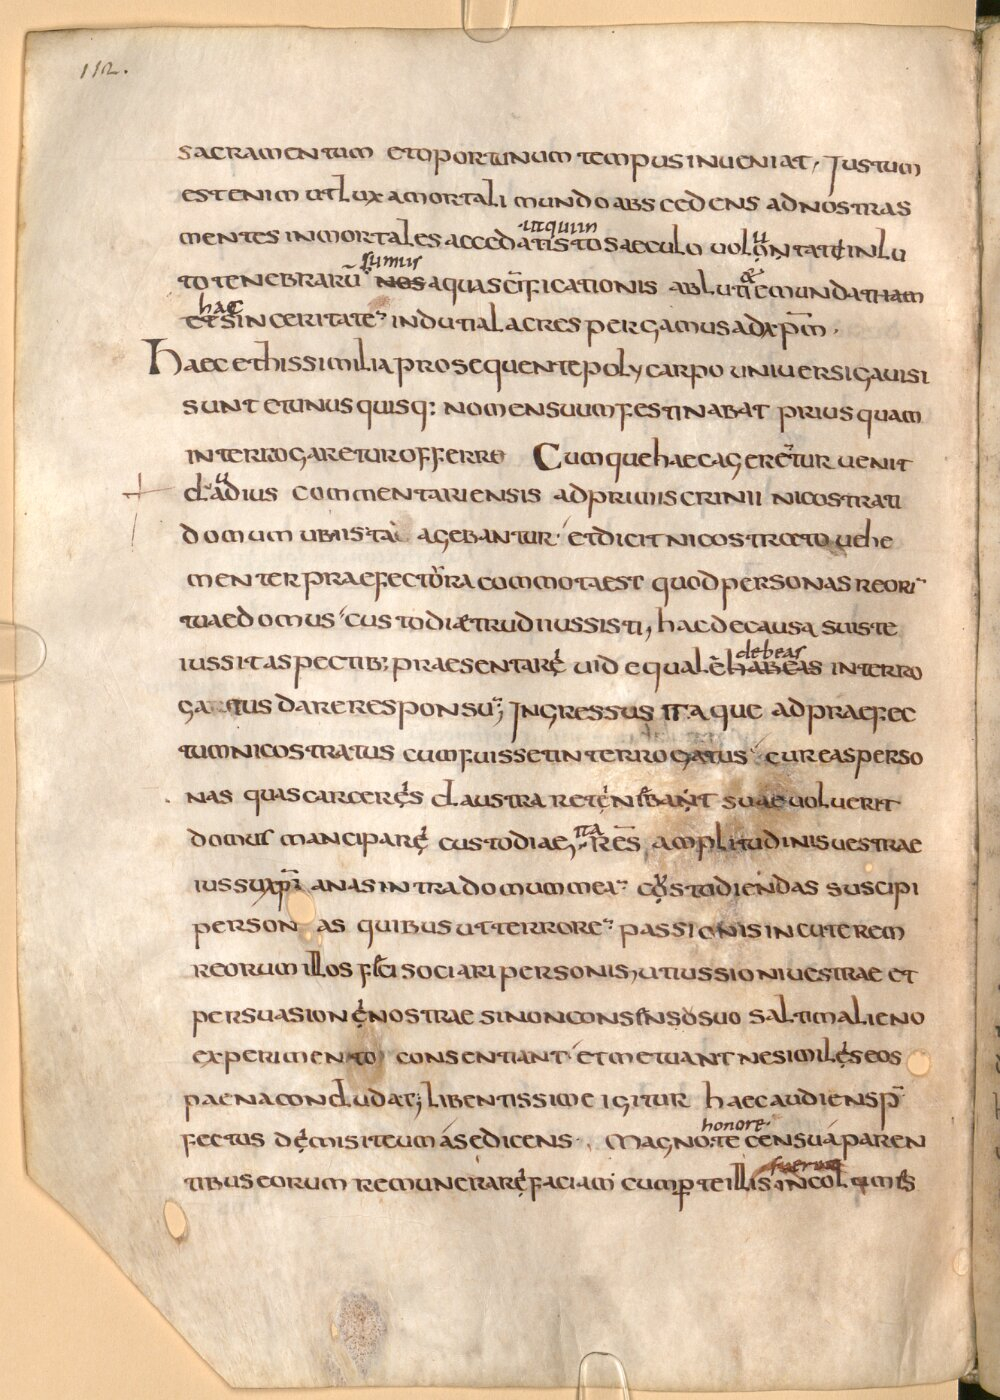 112.
sacramentum etoportunum tempus inueniat, Justum
est enim ut lux a mortali mundo abscedens ad nostras
ut quiin
mentes inmortales accedat istos aeculo uoluntate in lu
sumus
to tenebrarū nos aqua scīficationis abluti & emundati tam
hac
et sinceritate induti alacres pergamus ad xp̄m.
Haec et his similia prosequente polycarpo uniuersi gauisi
sunt et unusquisq: nomen suum festinabat prius quam
interrogaretur offerre Cumque haec agerētur uenit
claudius commentariensis ad primiscrinii nicostrati
domum ubi ista agebantur et dicit nicostrato uehe
menter praefectura commota est quod personas reorū
tuae domus custodiae trudi iussisti, hac de causa suis te
debeas
iussit aspectib; praesentare uide qualē habeas interro
gatus dare responsū; Ingressus itaque ad praefec
tum nicostratus cum fuisset interrogatus cur eas perso
nas quas carceris claustra retinebant suae uoluerit
ita
domui mancipare custodiae, res amplitudinis uestrae
iussu xp̄ianas intra domum meā custodiendas suscipi
personas quibus ut terrorē passionis incuterem
reorum illos feci sociari personis, ut iussioni uestrae et
persuasioni nostrae si non consensu suo saltim alieno
experimento consentiant et metuant ne similis eos
paena concludat; libentissime igitur haec audiens p̄
honore
fectus demisit eum a se dicens. Magno te censu a paren
fuerint
tibus eorum remunerare faciam cum per te illis incolumes